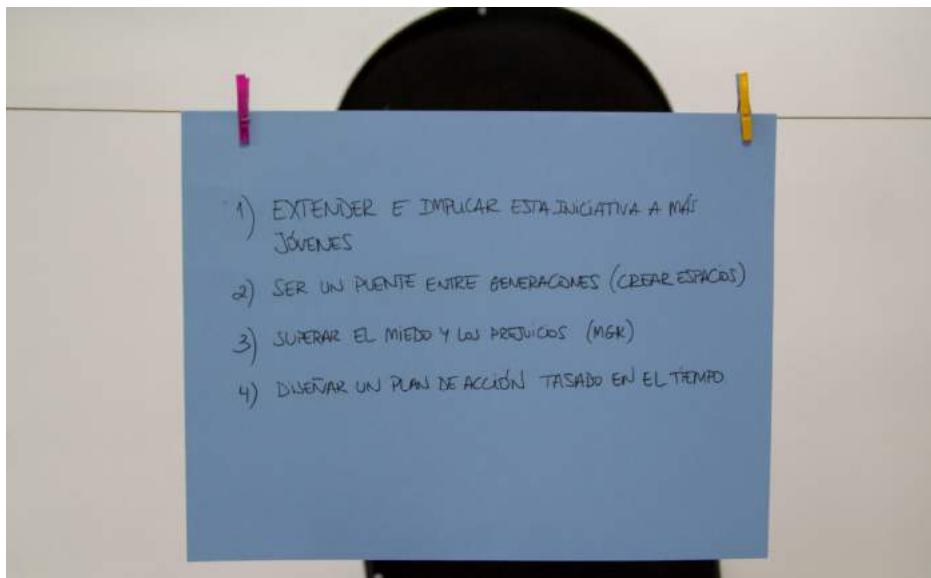 1) EXTENDER E IMPLICAR ESTA INICIATIVA A MÁS
JÓVENES
2) SER UN PUENTE ENTRE GENERACIONES (CREAR ESPACIOS)
3) SUPERAR EL MIEDO Y LOS PREJUICIOS (MGK)
4) DISEÑAR UN PLAN DE ACCIÓN TASADO EN EL TIEMPO